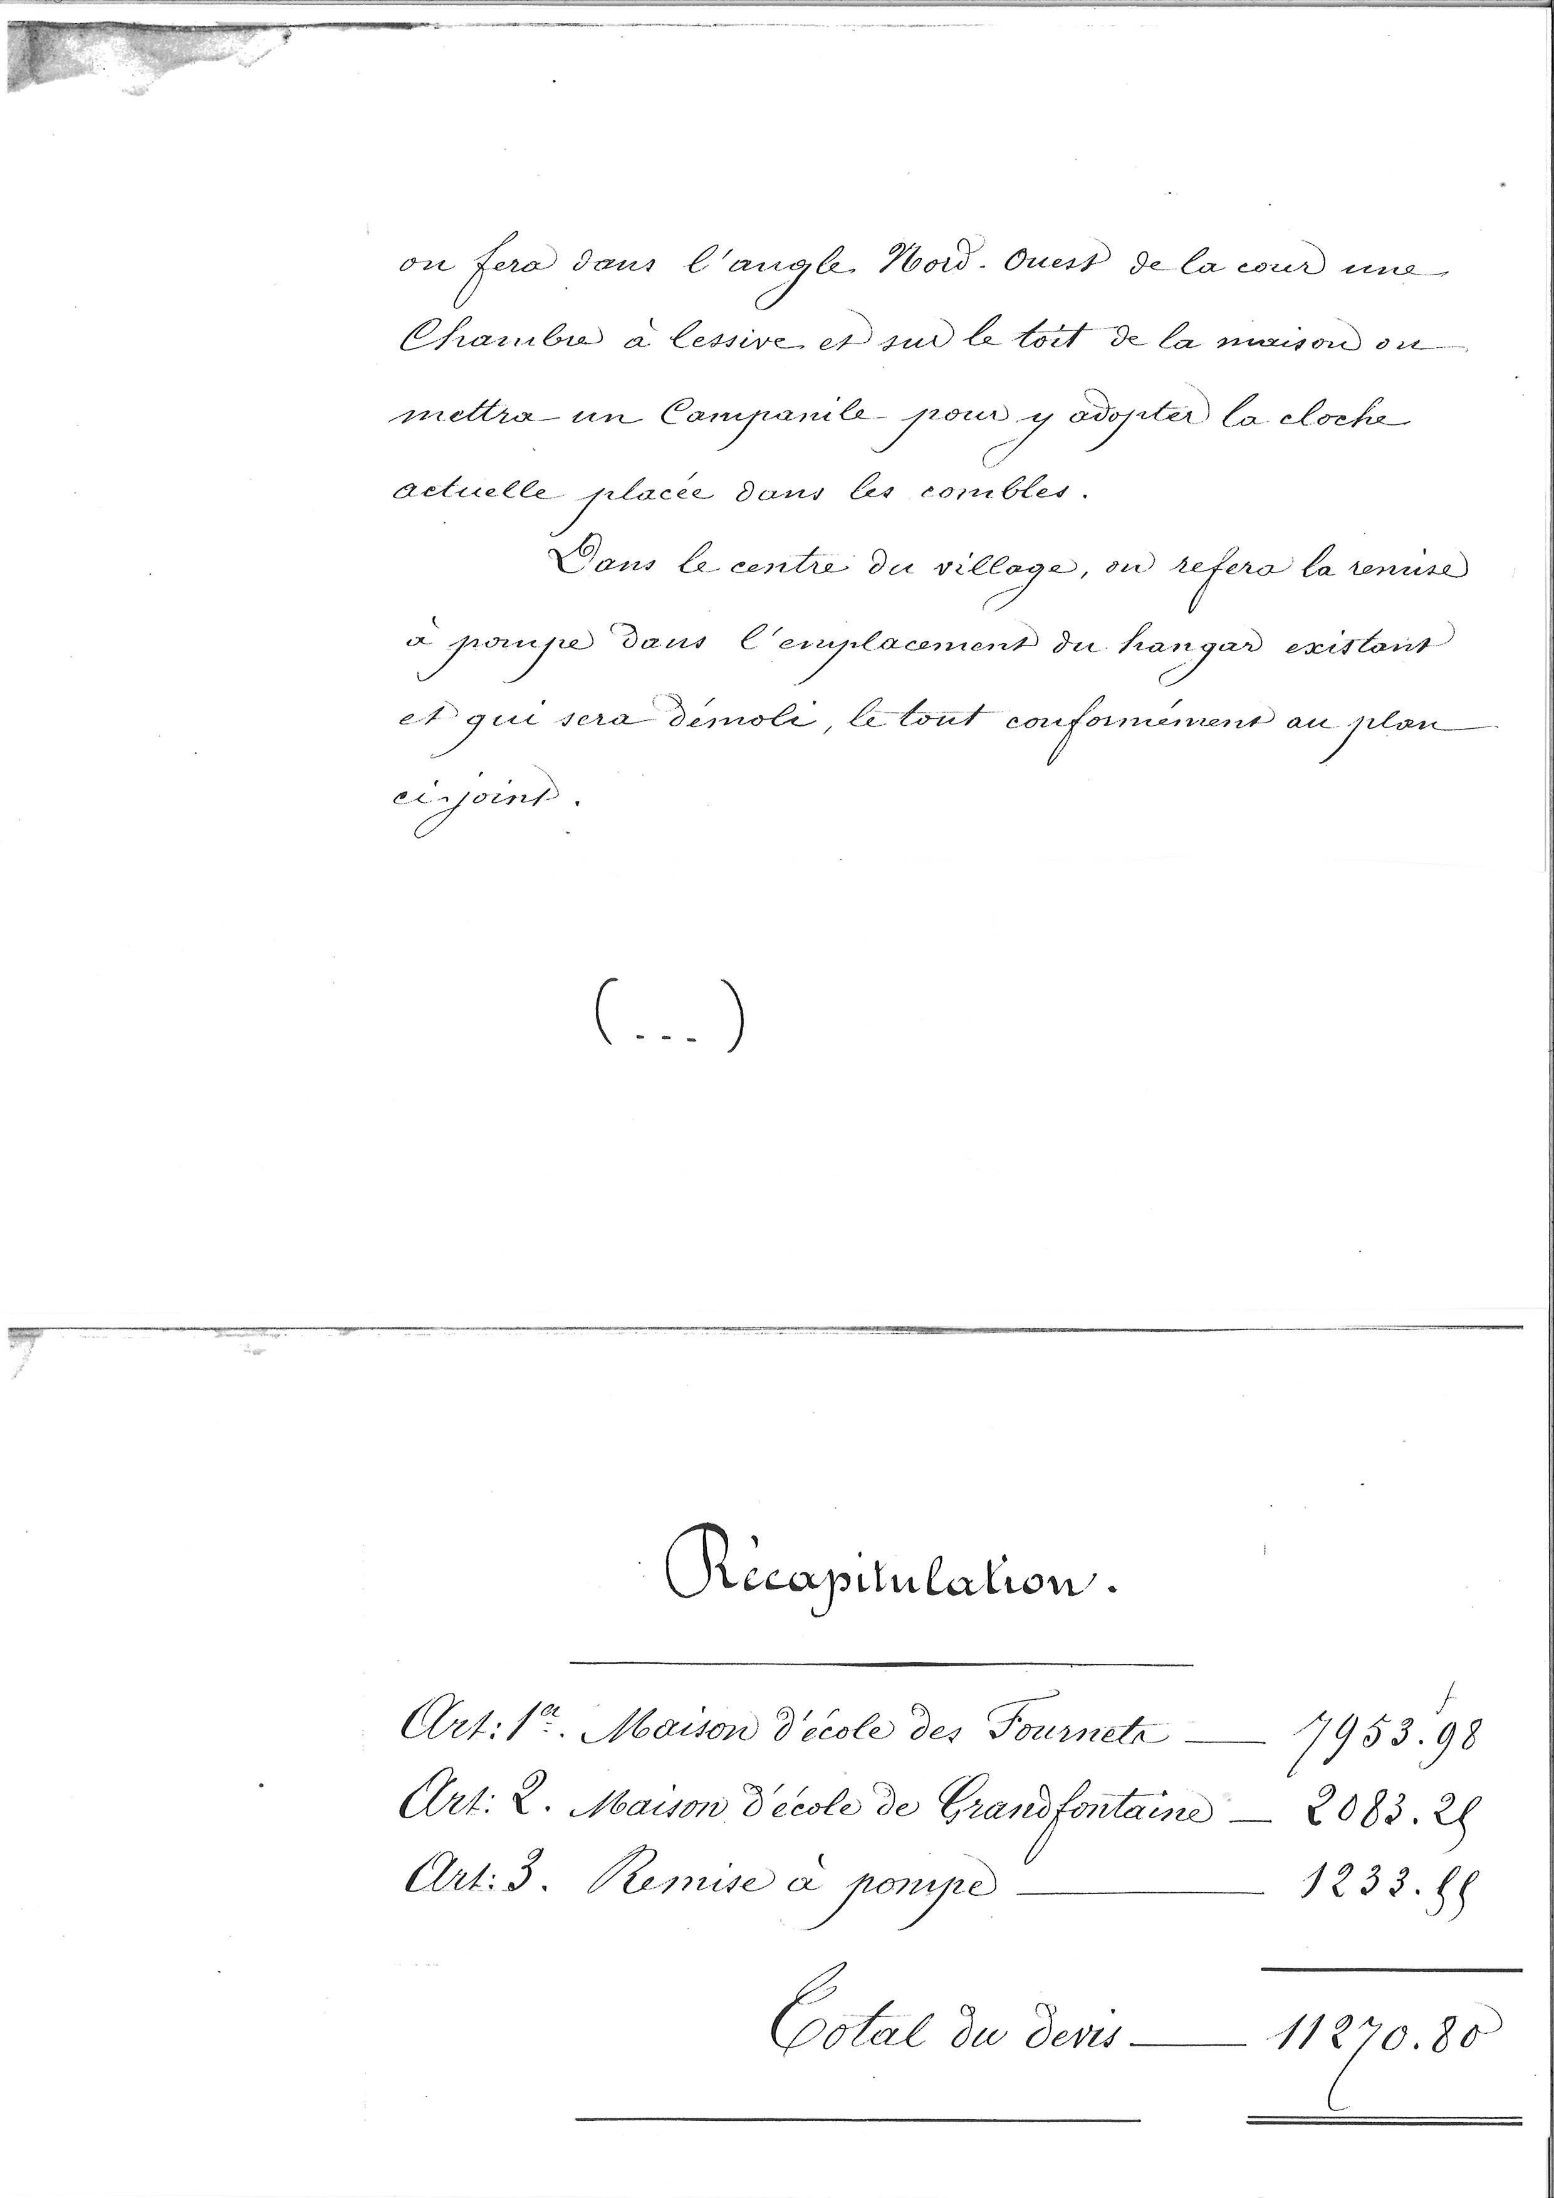 on fera dans l'angle Nord-Ouest de la cour une
Chambre à lessive et sur le toit de la maison on
mettra un Campanile pour y adopter la cloche
actuelle placée dans les combles.
Dans le centre du village, on refera la remise
à pompe dans l'emplacement du hangar existant
et qui sera démoli, le tout conformément au plan
ci-joint.
(...)
Récapitulation.
Art: 1er. Maison d'école des Fournets — 7953.f98
Art: 2. Maison d'école de Grandfontaine — 2083.25
Art: 3. Remise à pompe — 1233.55
Total du devis — 11270.80